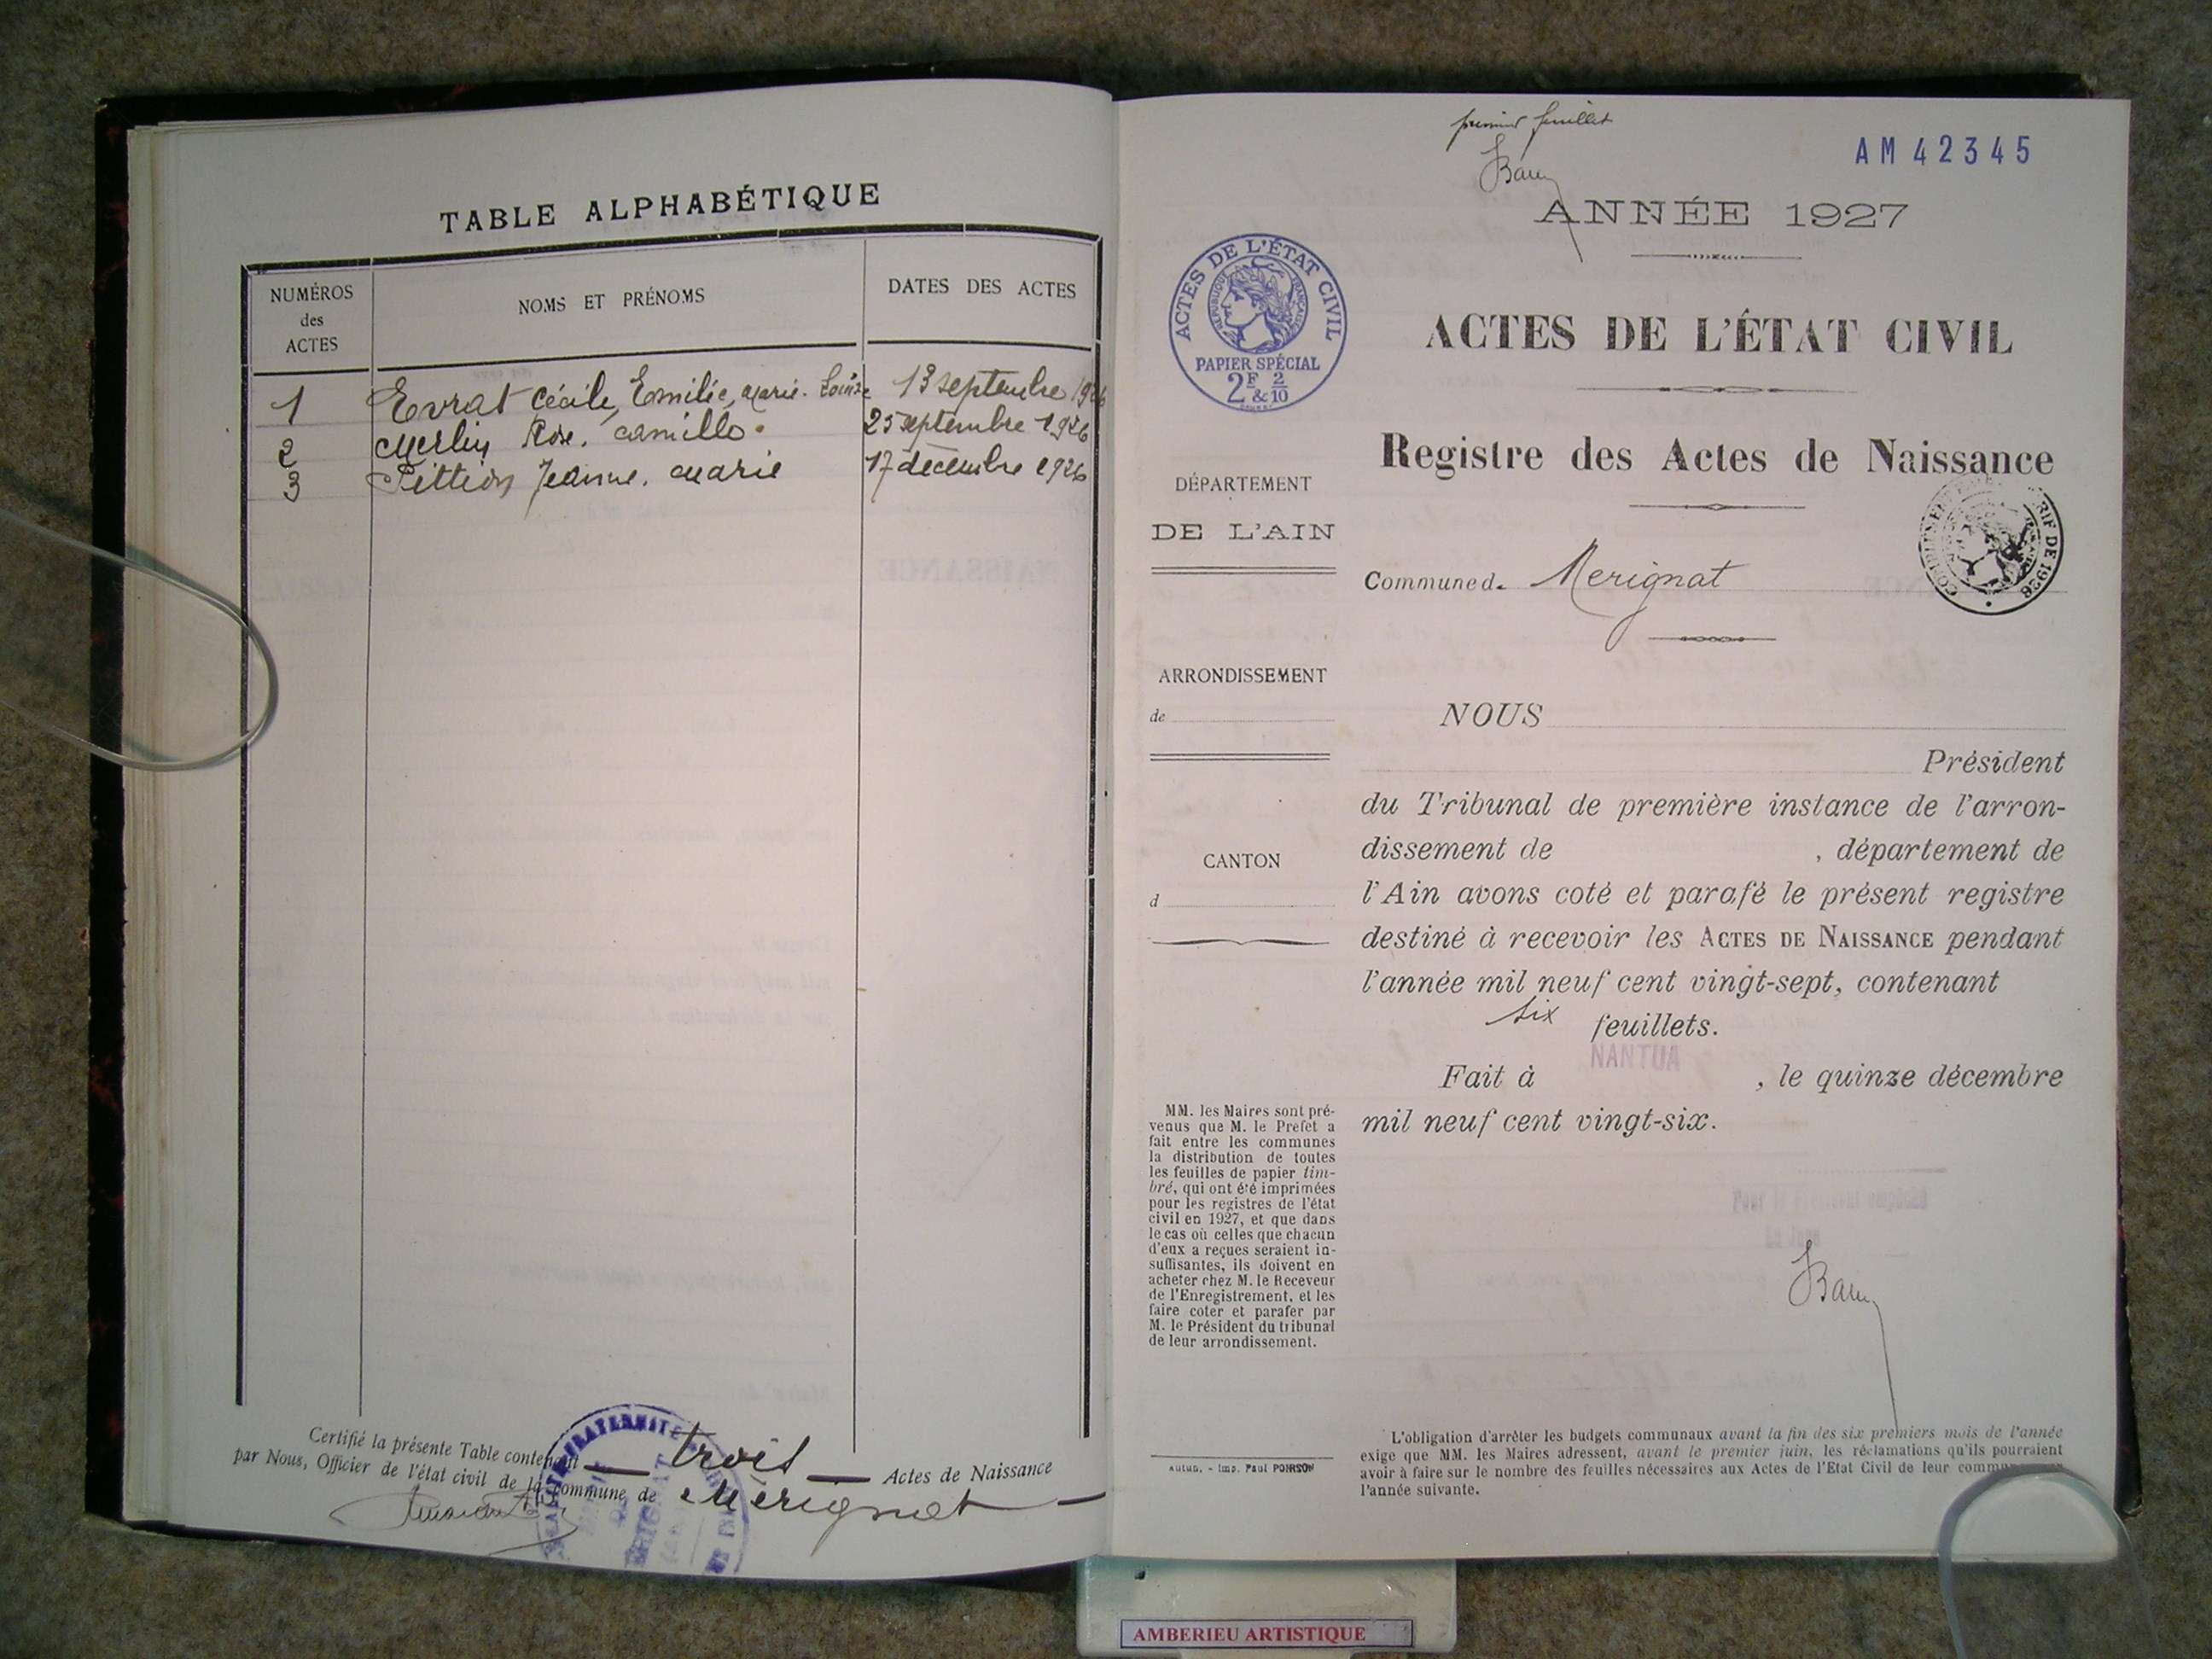 TABLE ALPHABÉTIQUE
NUMÉROS des ACTES
NOMS ET PRÉNOMS
DATES DES ACTES
1 Evrat Cécile, Emilie, Marie. Louise 13 septembre 1926
2 Merlin Rose. Camille. 25 septembre 1926
3 Pittion Jeanne. Marie 17 décembre 1926
Certifié la présente Table contenant trois Actes de Naissance
par Nous, Officier de l'état civil de la commune de Mérignat
premier feuillet
AM 42345
ANNÉE 1927
ACTES DE L'ÉTAT CIVIL
RÉPUBLIQUE FRANÇAISE
PAPIER SPÉCIAL
2F & 2/10
ACTES DE L'ÉTAT CIVIL
Registre des Actes de Naissance
DÉPARTEMENT
DE L'AIN
Commune de Merignat
ARRONDISSEMENT
de
CANTON
d
NOUS
Président
du Tribunal de première instance de l'arron-
dissement de , département de
l'Ain avons coté et parafé le présent registre
destiné à recevoir les ACTES DE NAISSANCE pendant
l'année mil neuf cent vingt-sept, contenant
six feuillets.
Fait à NANTUA , le quinze décembre
mil neuf cent vingt-six.
MM. les Maires sont pré-
venus que M. le Préfet a
fait entre les communes
la distribution de toutes
les feuilles de papier tim-
bré, qui ont été imprimées
pour les registres de l'état
civil en 1927, et que dans
le cas où celles que chacun
d'eux a reçues seraient in-
suffisantes, ils doivent en
acheter chez M. le Receveur
de l'Enregistrement, et les
faire coter et parafer par
M. le Président du tribunal
de leur arrondissement.
Autun. - Imp. Paul POIRSON
L'obligation d'arrêter les budgets communaux avant la fin des six premiers mois de l'année
exige que MM. les Maires adressent, avant le premier juin, les réclamations qu'ils pourraient
avoir à faire sur le nombre des feuilles nécessaires aux Actes de l'Etat Civil de leur
l'année suivante.
AMBERIEU ARTISTIQUE